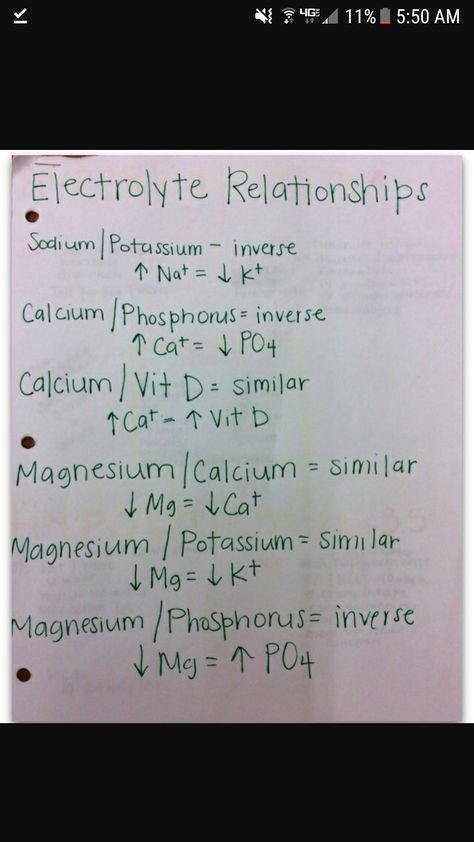 4G
11% 5:50 AM
Electrolyte Relationships
Sodium/Potassium - inverse
↑ Na+ = ↓ K+
Calcium/Phosphorus = inverse
↑ Ca+ = ↓ PO4
Calcium/Vit D = similar
↑ Ca+ - ↑ Vit D
Magnesium/Calcium = similar
↓ Mg = ↓ Ca+
Magnesium/Potassium = similar
↓ Mg = ↓ K+
Magnesium/Phosphorus = inverse
↓ Mg = ↑ PO4